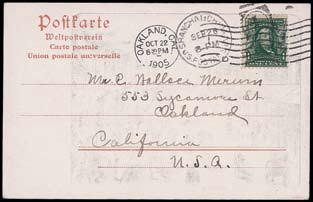 Postkarte
Weltpostverein
Carte postale
Union postale universelle
OAKLAND, CAL
OCT 22
1905
SEP 26
Mr. R. Wallace Merwin
553 Sycamore St
Oakland
California
U.S.A.